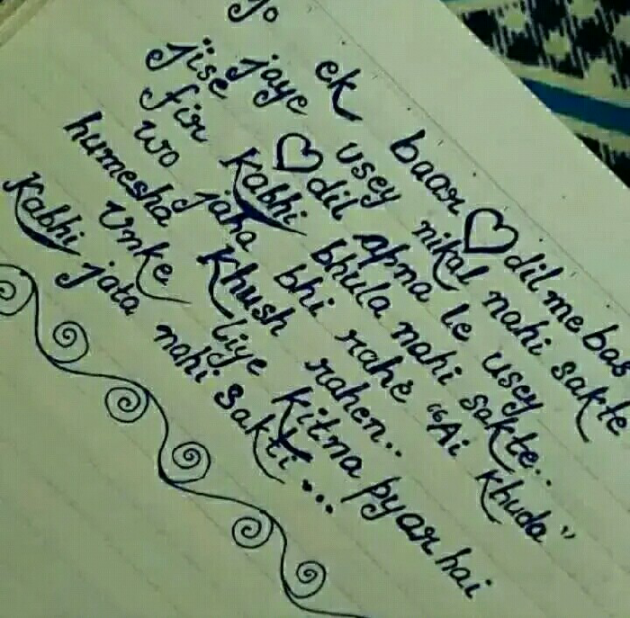 Jo ek baar ♡ dil me bas
jaye usey nikal nahi sakte
jise ♡ dil apna le usey
fir Kabhi bhula nahi sakte..
wo jaha bhi rahe "Ai Khuda"
humesha Khush rahen..
Unke liye kitna pyar hai
Kabhi jata nahi Sakti...